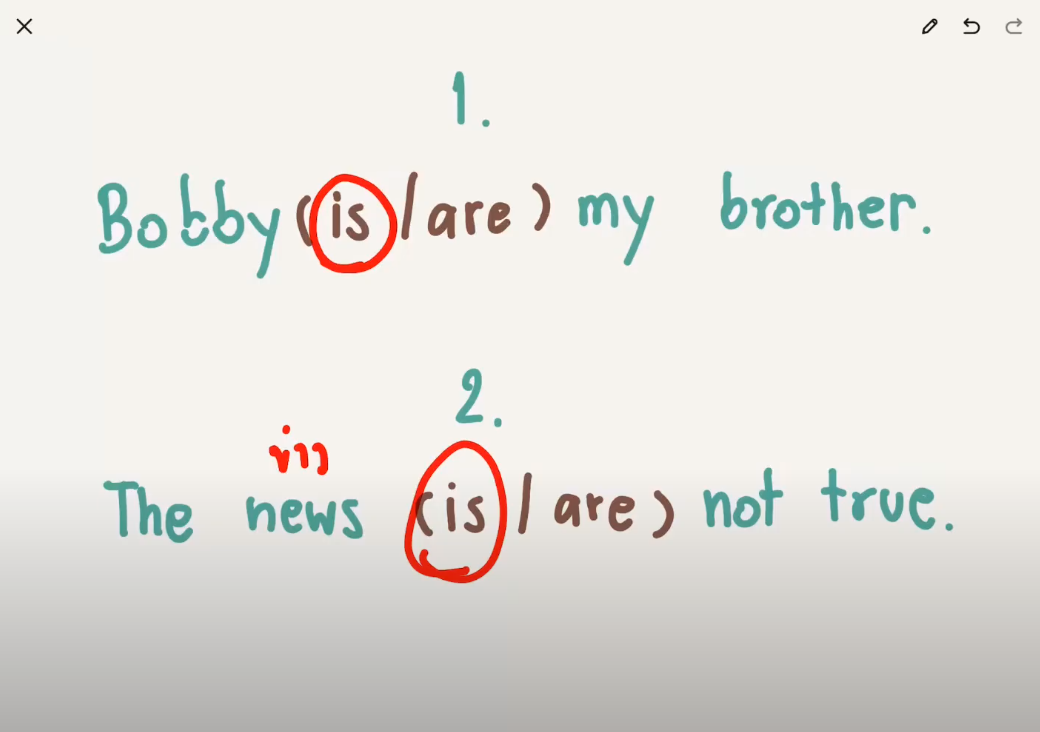 1.
Bobby (is / are) my brother.
2.
ข่าว
The news (is / are) not true.